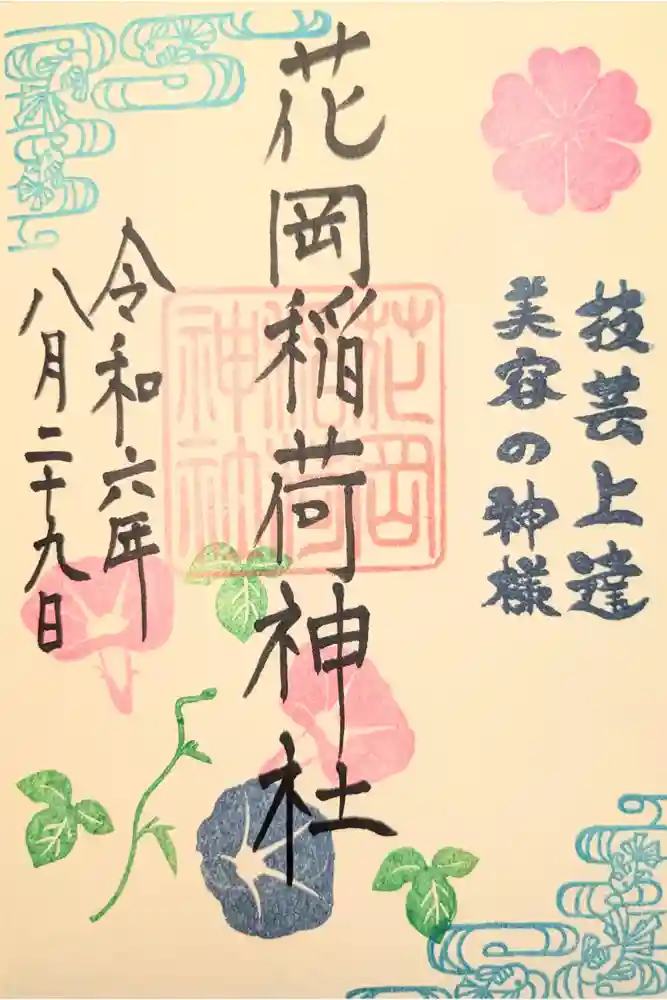 技芸上達
美容の神様
花岡稲荷神社
花岡稲荷神社
令和六年
八月二十九日